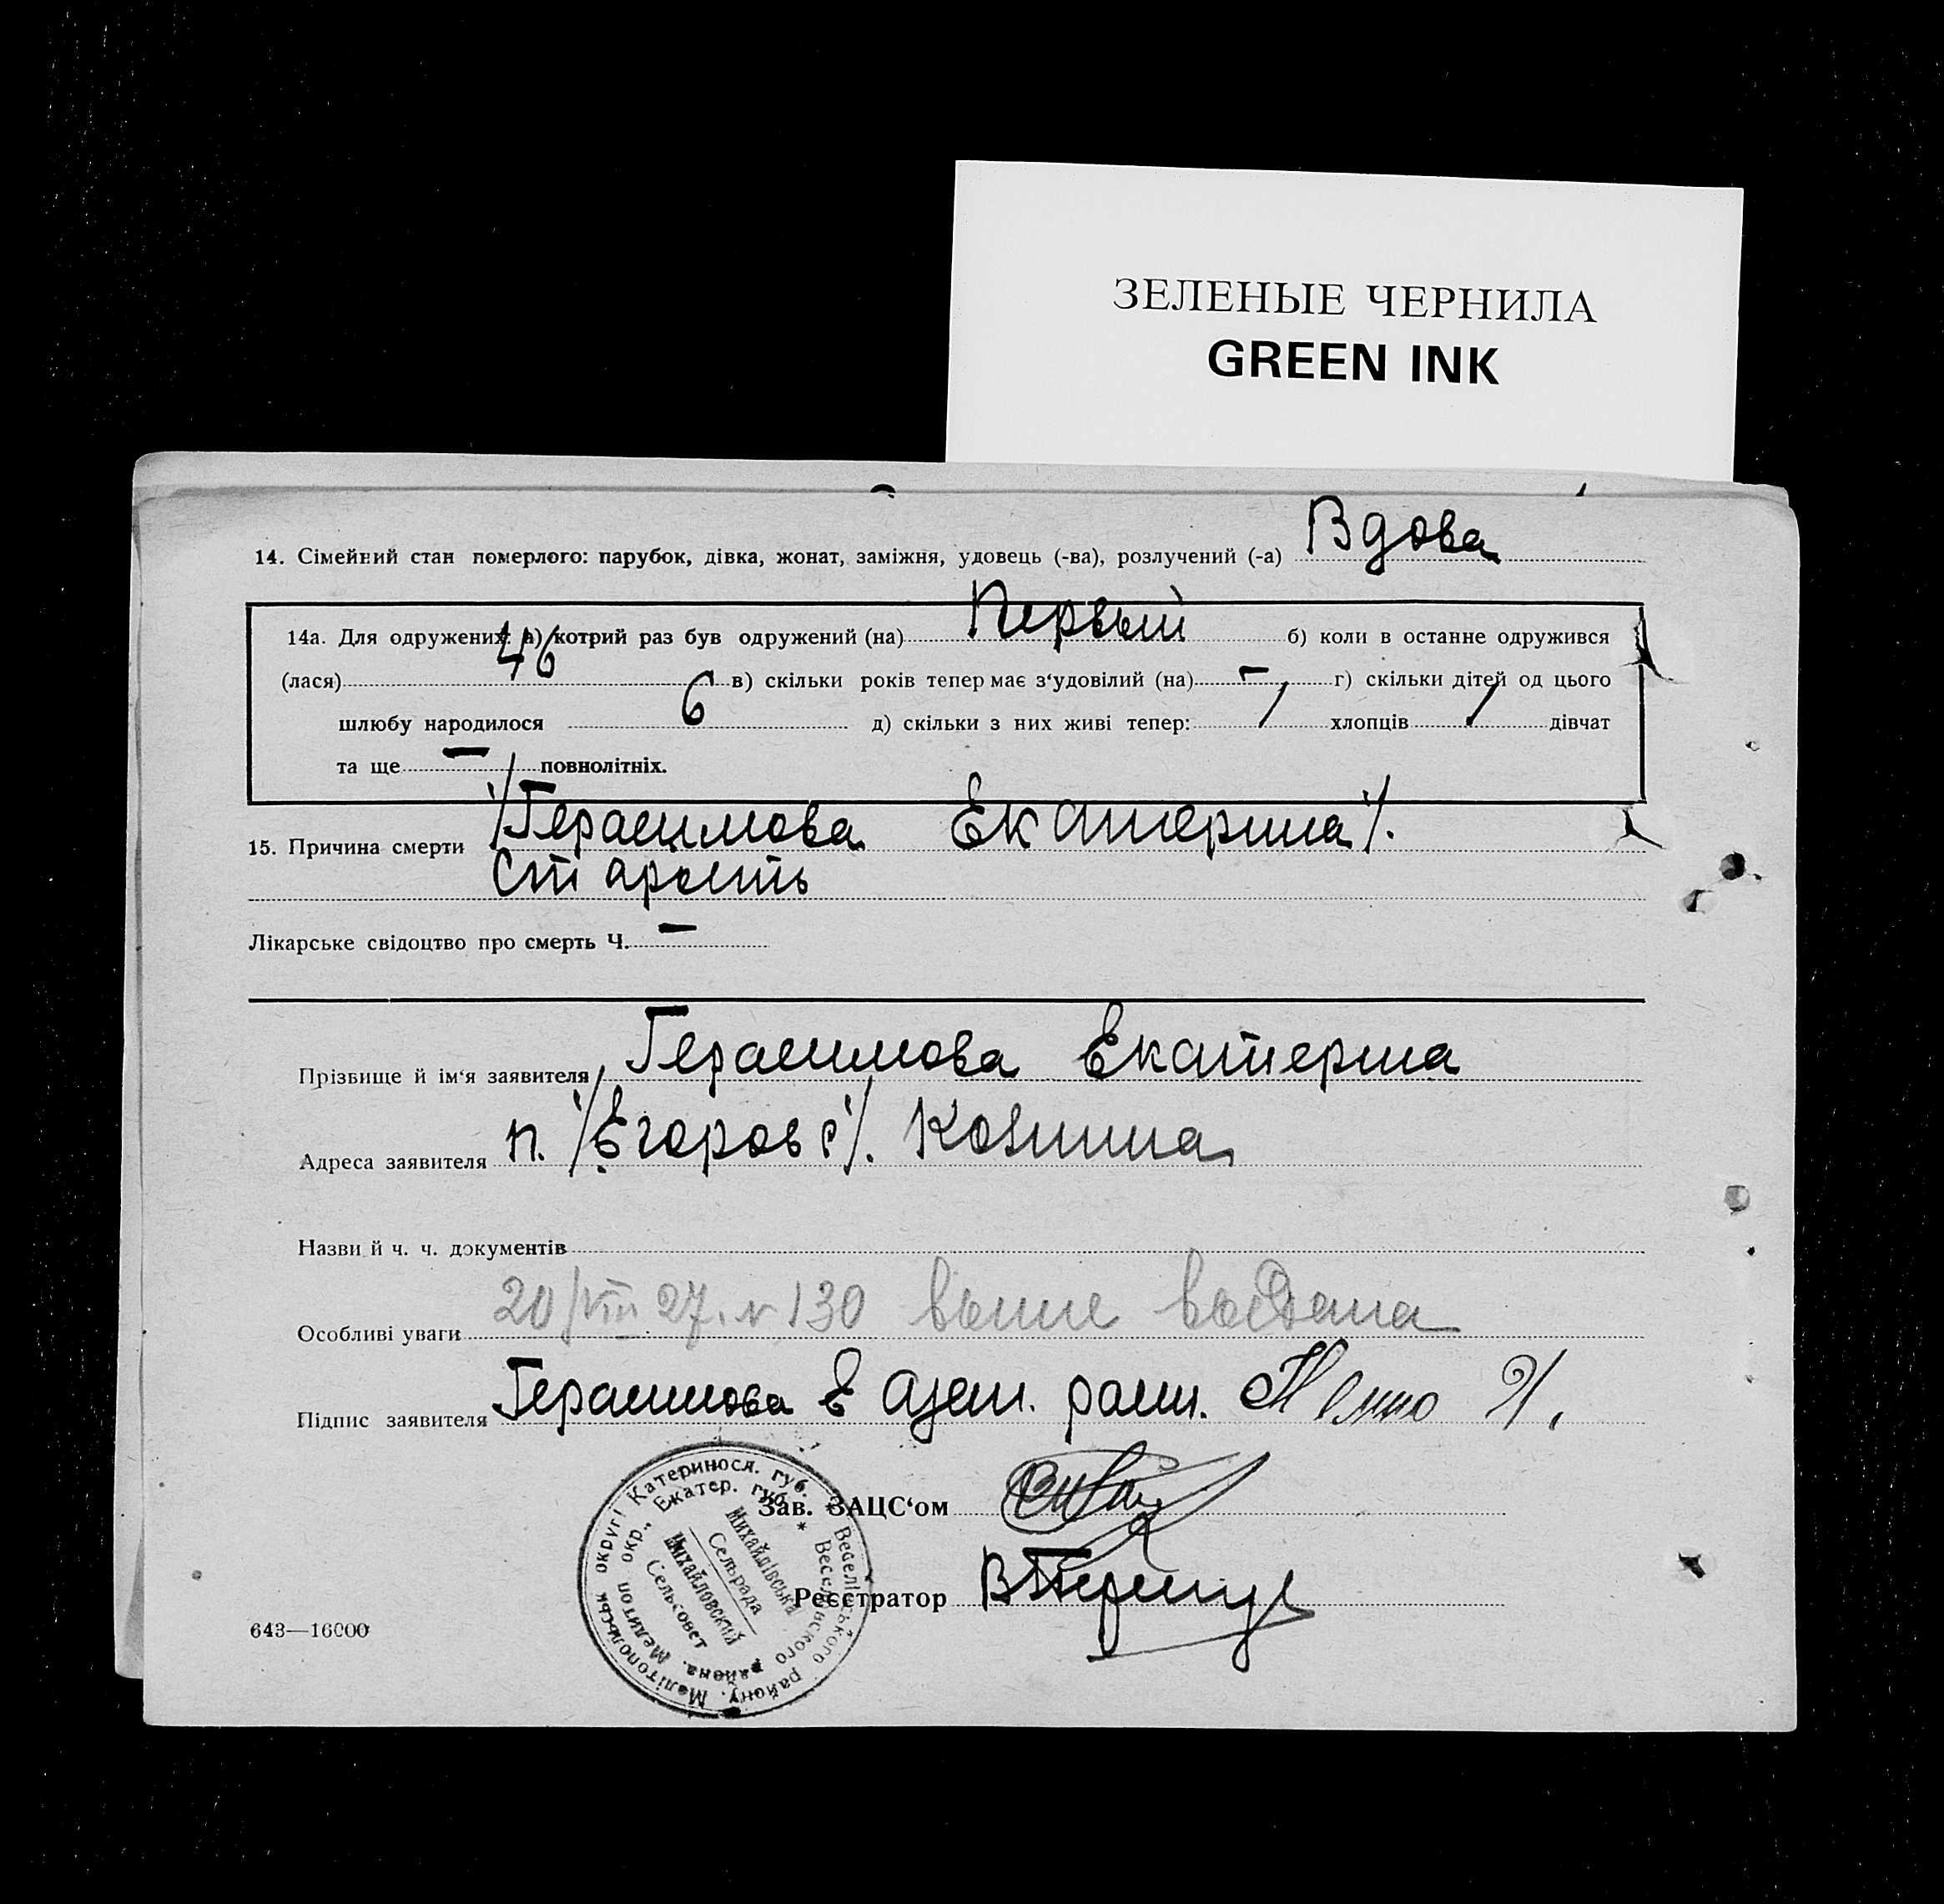 ЗЕЛЕНЫЕ ЧЕРНИЛА
GREEN INK
14. Сімейний стан померлого: парубок, дівка, жонат, заміжня, удовець (-ва), розлучений (-а) Вдова
14а. Для одружених: а) котрий раз був одружений (на) Первый б) коли в останнє одружився
(лася) 46 в) скільки років тепер має з‘удовілий (на) – г) скільки дітей од цього
шлюбу народилося 6 д) скільки з них живі тепер: / хлопців / дівчат
та ще – повнолітніх.
15. Причина смерти /Герасимова Екатерина/.
Старость
Лікарське свідоцтво про смерть Ч. –
Прізвище й ім‘я заявителя Герасимова Екатерина
Адреса заявителя п. /Егоров
Назви й ч. ч. документів
Особливі уваги 20/VIII 27. № 130 выпис выдана
Підпис заявителя Герасимова Е
Зав. ЗАЦС‘ом
Реєстратор
Мелітопольськ округі Катериносл. губ. * Веселівського району.
Мелитоп окр., Екатер. губ. * Веселовского района.
Михайлівська
Сельрада
Михайловский
Сельсовет
643—16000